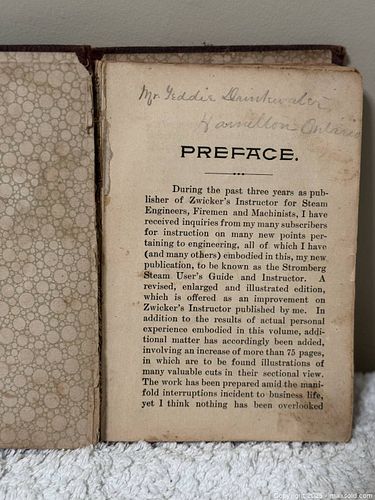 Mr. Teddie Drinkwater
Hamilton Ontario
PREFACE.
During the past three years as pub-
lisher of Zwicker's Instructor for Steam
Engineers, Firemen and Machinists, I have
received inquiries from my many subscribers
for instruction on many new points per-
taining to engineering, all of which I have
(and many others) embodied in this, my new
publication, to be known as the Stromberg
Steam User's Guide and Instructor. A
revised, enlarged and illustrated edition,
which is offered as an improvement on
Zwicker's Instructor published by me. In
addition to the results of actual personal
experience embodied in this volume, addi-
tional matter has accordingly been added,
involving an increase of more than 75 pages,
in which are to be found illustrations of
many valuable cuts in their sectional view.
The work has been prepared amid the mani-
fold interruptions incident to business life,
yet I think nothing has been overlooked
Copyright 2025 - maxsold.com